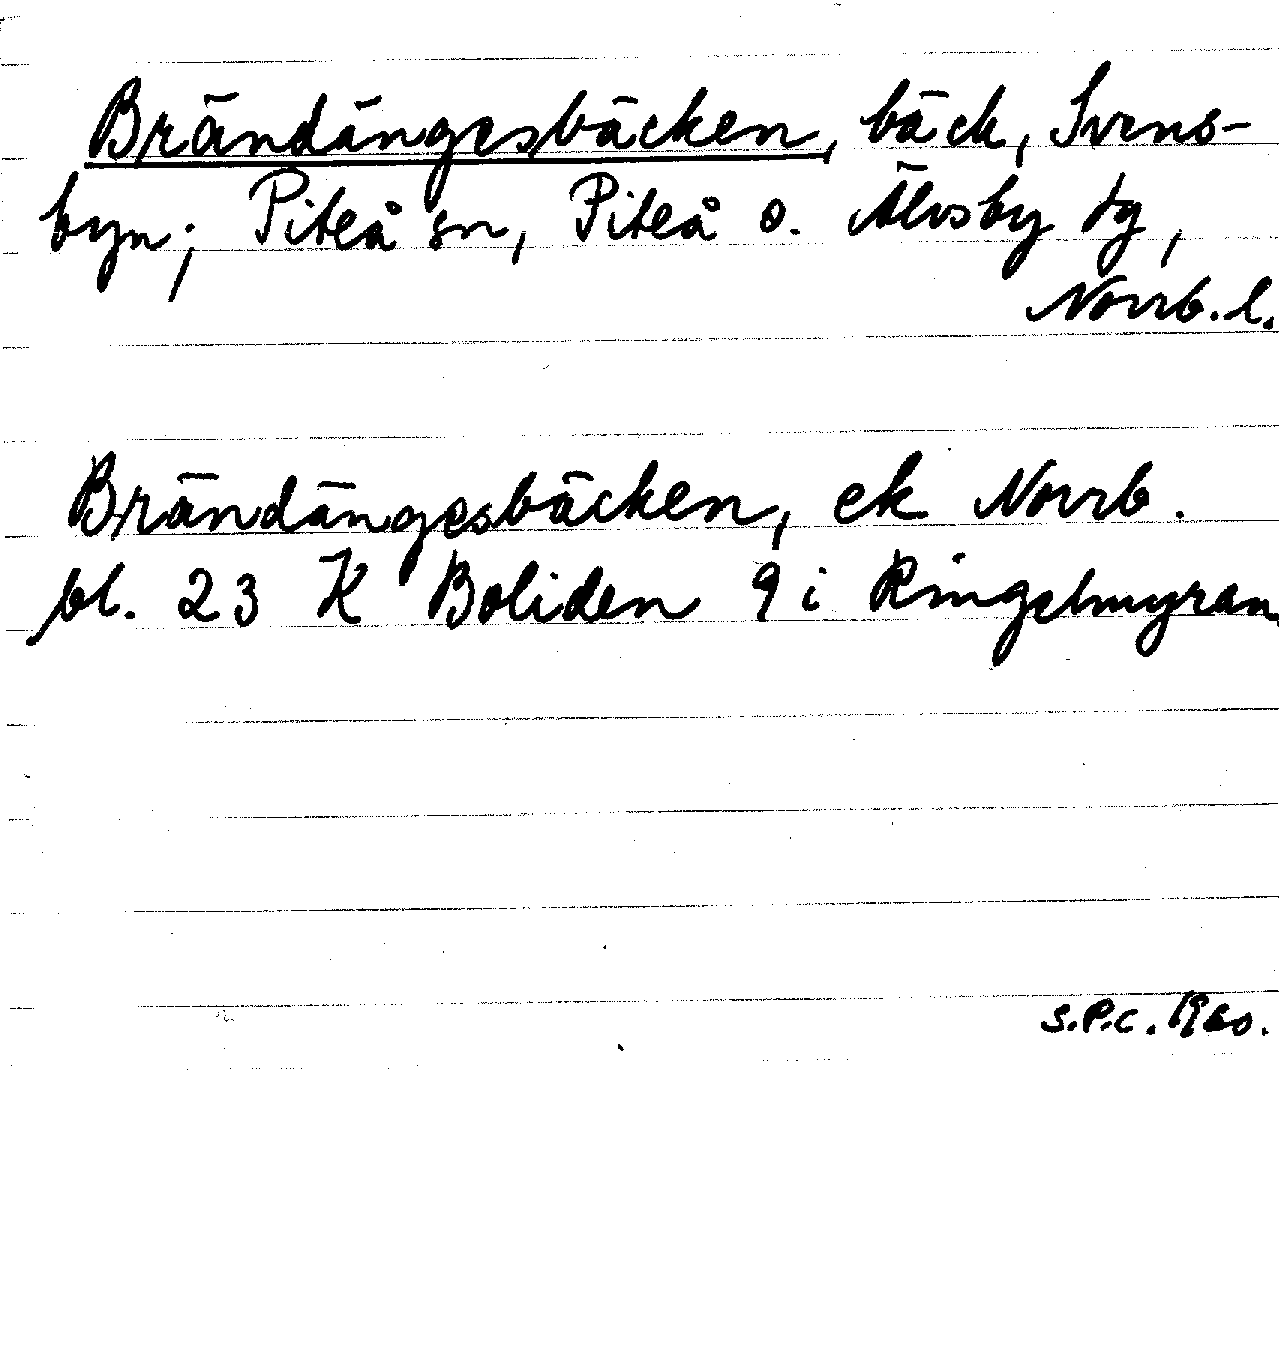 Brändängesbäcken, bäck, Svens-
byn; Piteå sn, Piteå o. Älvsby tg,
Norrb. l.
Brändängesbäcken, ek Norrb.
bl. 23 K Boliden 9 i Ringelmyran
S.P.C. 1960.